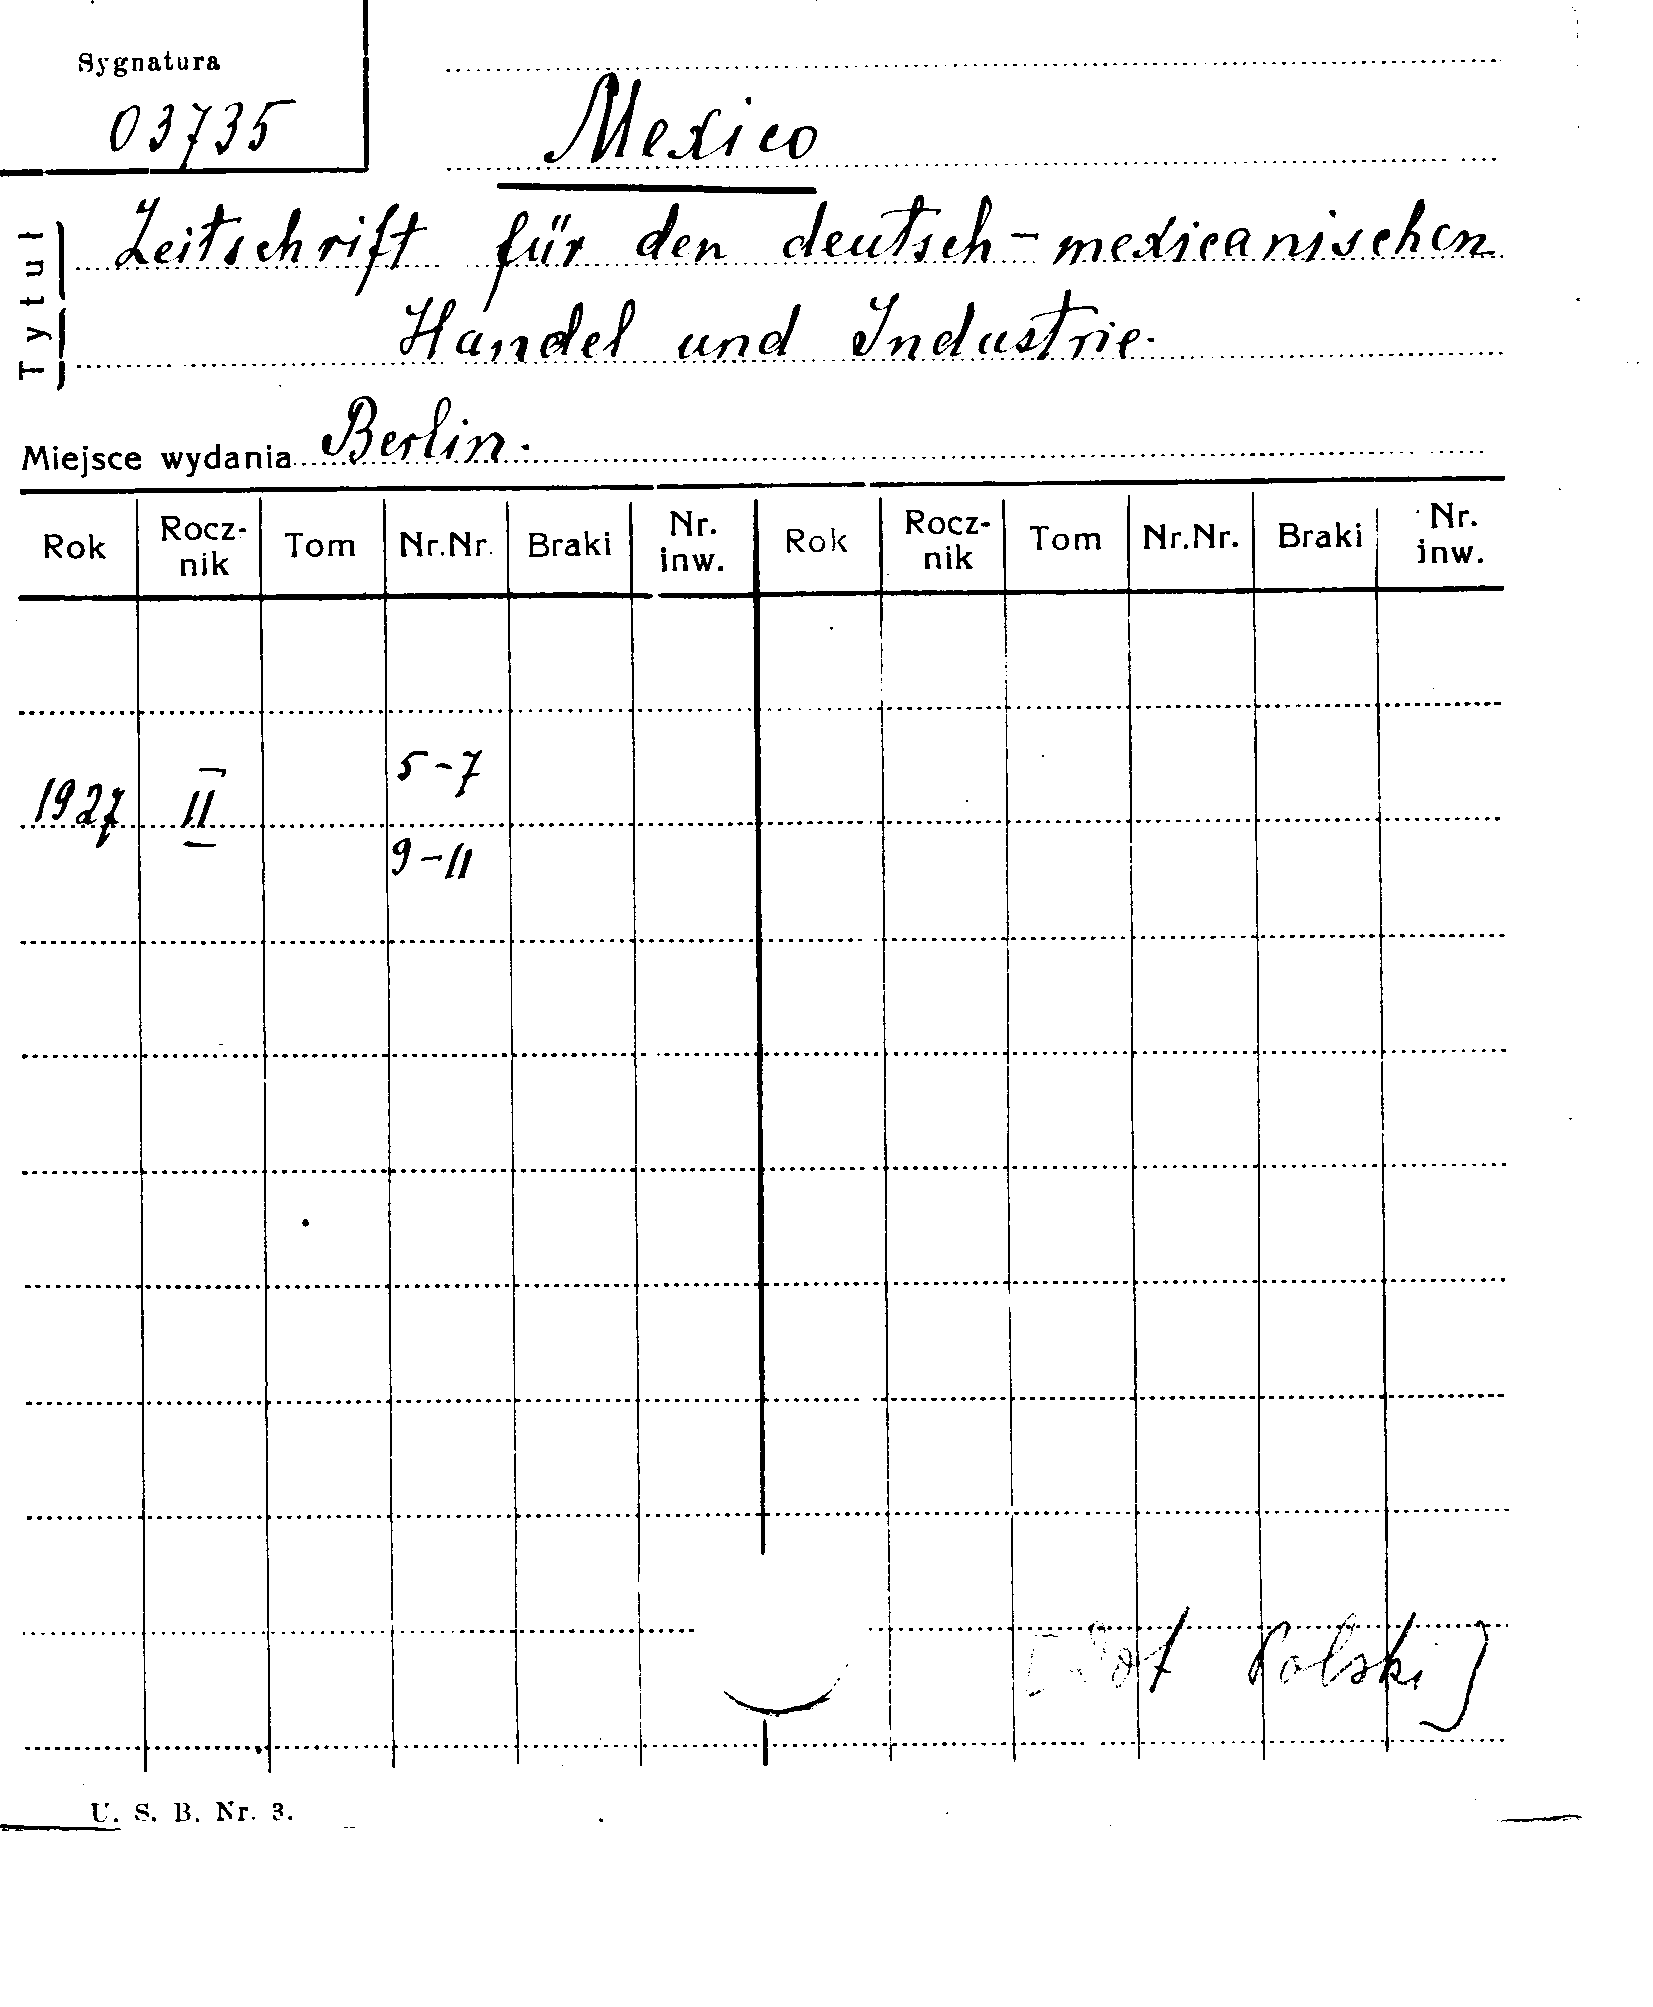 Sygnatura
03735
Mexico
Tytuł
Zeitschrift für den deutsch-mexicanischen
Handel und Industrie.
Miejsce wydania Berlin.
Rok Rocz-nik Tom Nr.Nr. Braki Nr. inw. Rok Rocz-nik Tom Nr.Nr. Braki Nr. inw.
5-7
1927 II
9-11
Polski]
U. S. B. Nr. 3.